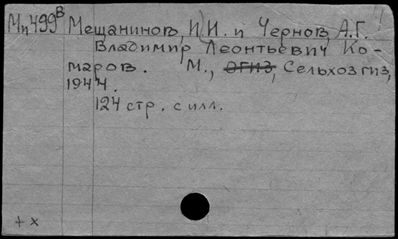 Мп499В Мещанинов, И.И. и Чернов, А.Г.
Владимир Леонтьевич Ко-
маров. М., ОГИЗ, Сельхозгиз,
1944.
124 стр. с илл.
+ х